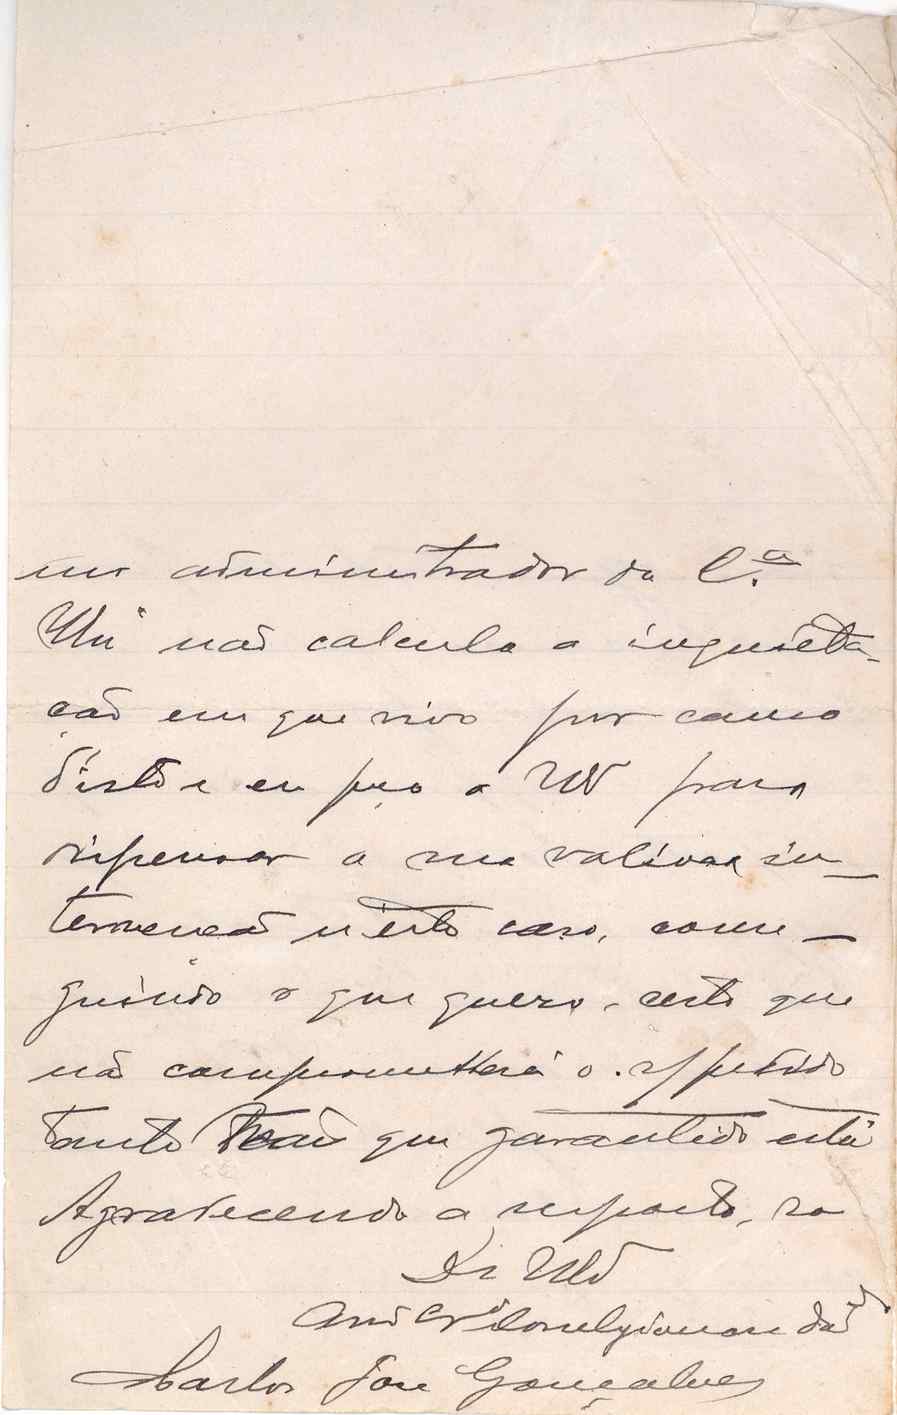 um administrador da C.ª
não calcula a inquieta-
ção em que vivo por causa
disto e eu peço a para
dispensar a sua valiosa in-
tervenção n'esto caso, conse-
guindo o que quero, certo que
não comprometterá o pedido
tanto mais que garantido está
Agradecendo a resposta, sou
De
Carlos José Gonçalves